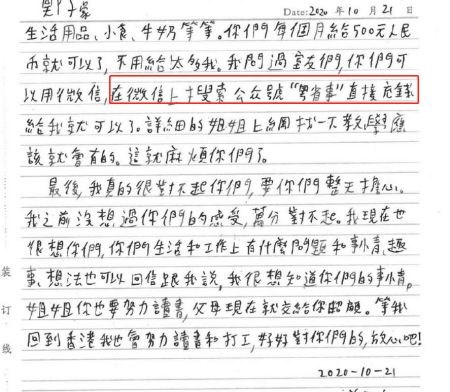 鄭子豪
Date: 2020 年 10 月 21 日
生活用品、小食、牛奶等等。你們每個月給500元人民
币就可以了，不用給太多我。我問過室友們，你們可
以用微信，在微信上搜索公众號“粤省事”直接存錢
給我就可以了。詳細的姐姐上網找一下教學應
該就會有的。這就麻煩你們了。
最後，我真的很對不起你們，要你們整天擔心。
我之前沒想過你們的感受，萬分對不起。我現在也
很想你們，你們生活和工作上有什麼問題和事情，趣
事、想法也可以回信跟我說，我很想知道你們的事情。
姐姐你也要努力讀書，父母現在就交給你照顧。等我
回到香港我也會努力讀書和打工，好好對你們的，放心吧！
2020-10-21
装
订
线